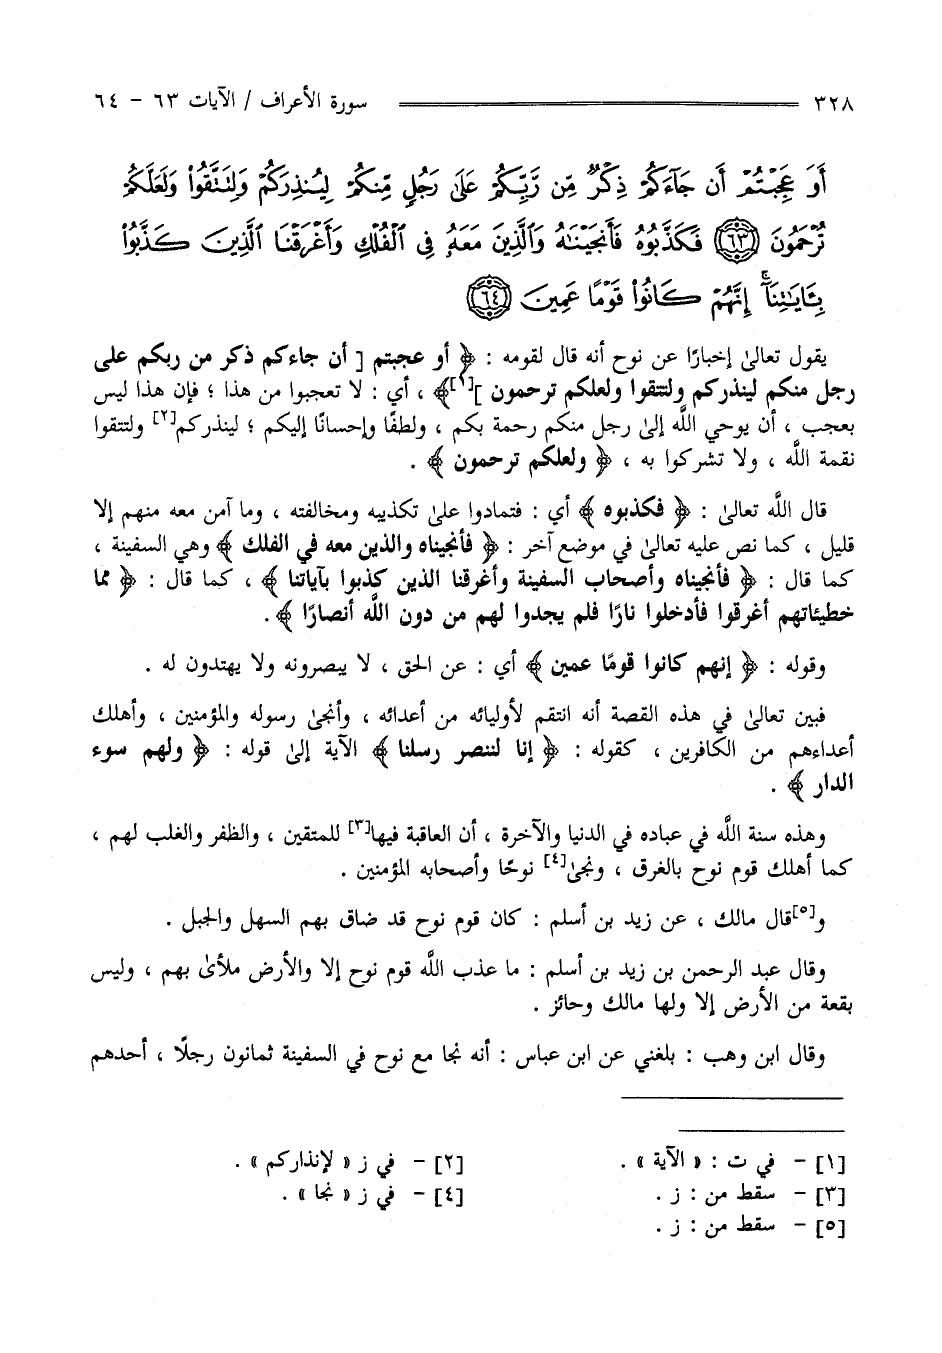 ٣٢٨ سورة الأعراف / الآيات ٦٣ - ٦٤
أَوَ عَجِبْتُمْ أَن جَآءَكُمْ ذِكْرٌ مِّن رَّبِّكُمْ عَلَىٰ رَجُلٍ مِّنكُمْ لِيُنذِرَكُمْ وَلِتَتَّقُوا۟ وَلَعَلَّكُمْ
تُرْحَمُونَ ﴿٦٣﴾ فَكَذَّبُوهُ فَأَنجَيْنَـٰهُ وَٱلَّذِينَ مَعَهُۥ فِى ٱلْفُلْكِ وَأَغْرَقْنَا ٱلَّذِينَ كَذَّبُوا۟
بِـَٔايَـٰتِنَآ ۚ إِنَّهُمْ كَانُوا۟ قَوْمًا عَمِينَ ﴿٦٤﴾
يقول تعالىٰ إخبارًا عن نوح أنه قال لقومه : ﴿ أو عجبتم [ أن جاءكم ذكر من ربكم على
رجل منكم لينذركم ولتتقوا ولعلكم ترحمون ][١]﴾ ، أي : لا تعجبوا من هذا ؛ فإن هذا ليس
بعجب ، أن يوحي اللَّه إلىٰ رجل منكم رحمة بكم ، ولطفًا وإحسانًا إليكم ؛ لينذركم[٢] ولتتقوا
نقمة اللَّه ، ولا تشركوا به ، ﴿ ولعلكم ترحمون ﴾ .
قال اللَّه تعالىٰ : ﴿ فكذبوه ﴾ أي : فتمادوا علىٰ تكذيبه ومخالفته ، وما آمن معه منهم إلا
قليل ، كما نص عليه تعالىٰ في موضع آخر : ﴿ فأنجيناه والذين معه في الفلك ﴾ وهي السفينة ،
كما قال : ﴿ فأنجيناه وأصحاب السفينة وأغرقنا الذين كذبوا بآياتنا ﴾ ، كما قال : ﴿ مما
خطيئاتهم أغرقوا فأدخلوا نارًا فلم يجدوا لهم من دون اللَّه أنصارًا ﴾ .
وقوله : ﴿ إنهم كانوا قومًا عمين ﴾ أي : عن الحق ، لا يبصرونه ولا يهتدون له .
فبين تعالىٰ في هذه القصة أنه انتقم لأوليائه من أعدائه ، وأنجىٰ رسوله والمؤمنين ، وأهلك
أعداءهم من الكافرين ، كقوله : ﴿ إنا لننصر رسلنا ﴾ الآية إلىٰ قوله : ﴿ ولهم سوء
الدار ﴾ .
وهذه سنة اللَّه في عباده في الدنيا والآخرة ، أن العاقبة فيها[٣] للمتقين ، والظفر والغلب لهم ،
كما أهلك قوم نوح بالغرق ، ونجىٰ[٤] نوحًا وأصحابه المؤمنين .
و[٥]قال مالك ، عن زيد بن أسلم : كان قوم نوح قد ضاق بهم السهل والجبل .
وقال عبد الرحمن بن زيد بن أسلم : ما عذب اللَّه قوم نوح إلا والأرض ملأىٰ بهم ، وليس
بقعة من الأرض إلا ولها مالك وحائز .
وقال ابن وهب : بلغني عن ابن عباس : أنه نجا مع نوح في السفينة ثمانون رجلًا ، أحدهم
[١] - في ت : « الآية » . [٢] - في ز « لإنذاركم » .
[٣] - سقط من : ز . [٤] - في ز « نجا » .
[٥] - سقط من : ز .